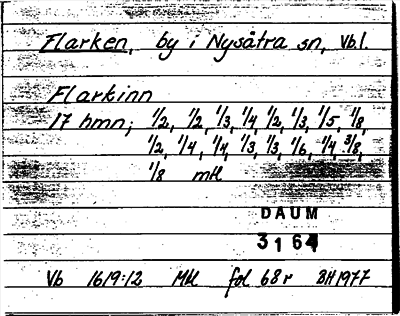 Flarken, by i Nysätra sn, Vb l.
Flarkinn
17 hmn; 1/2, 1/2, 1/3, 1/4, 1/2, 1/3, 1/5, 1/8,
1/2, 1/4, 1/4, 1/3, 1/3, 1/6, 1/4, 3/8,
1/8 mtl
DAUM
3164
Vb 1619:12 Mtl fol 68r BH 1977